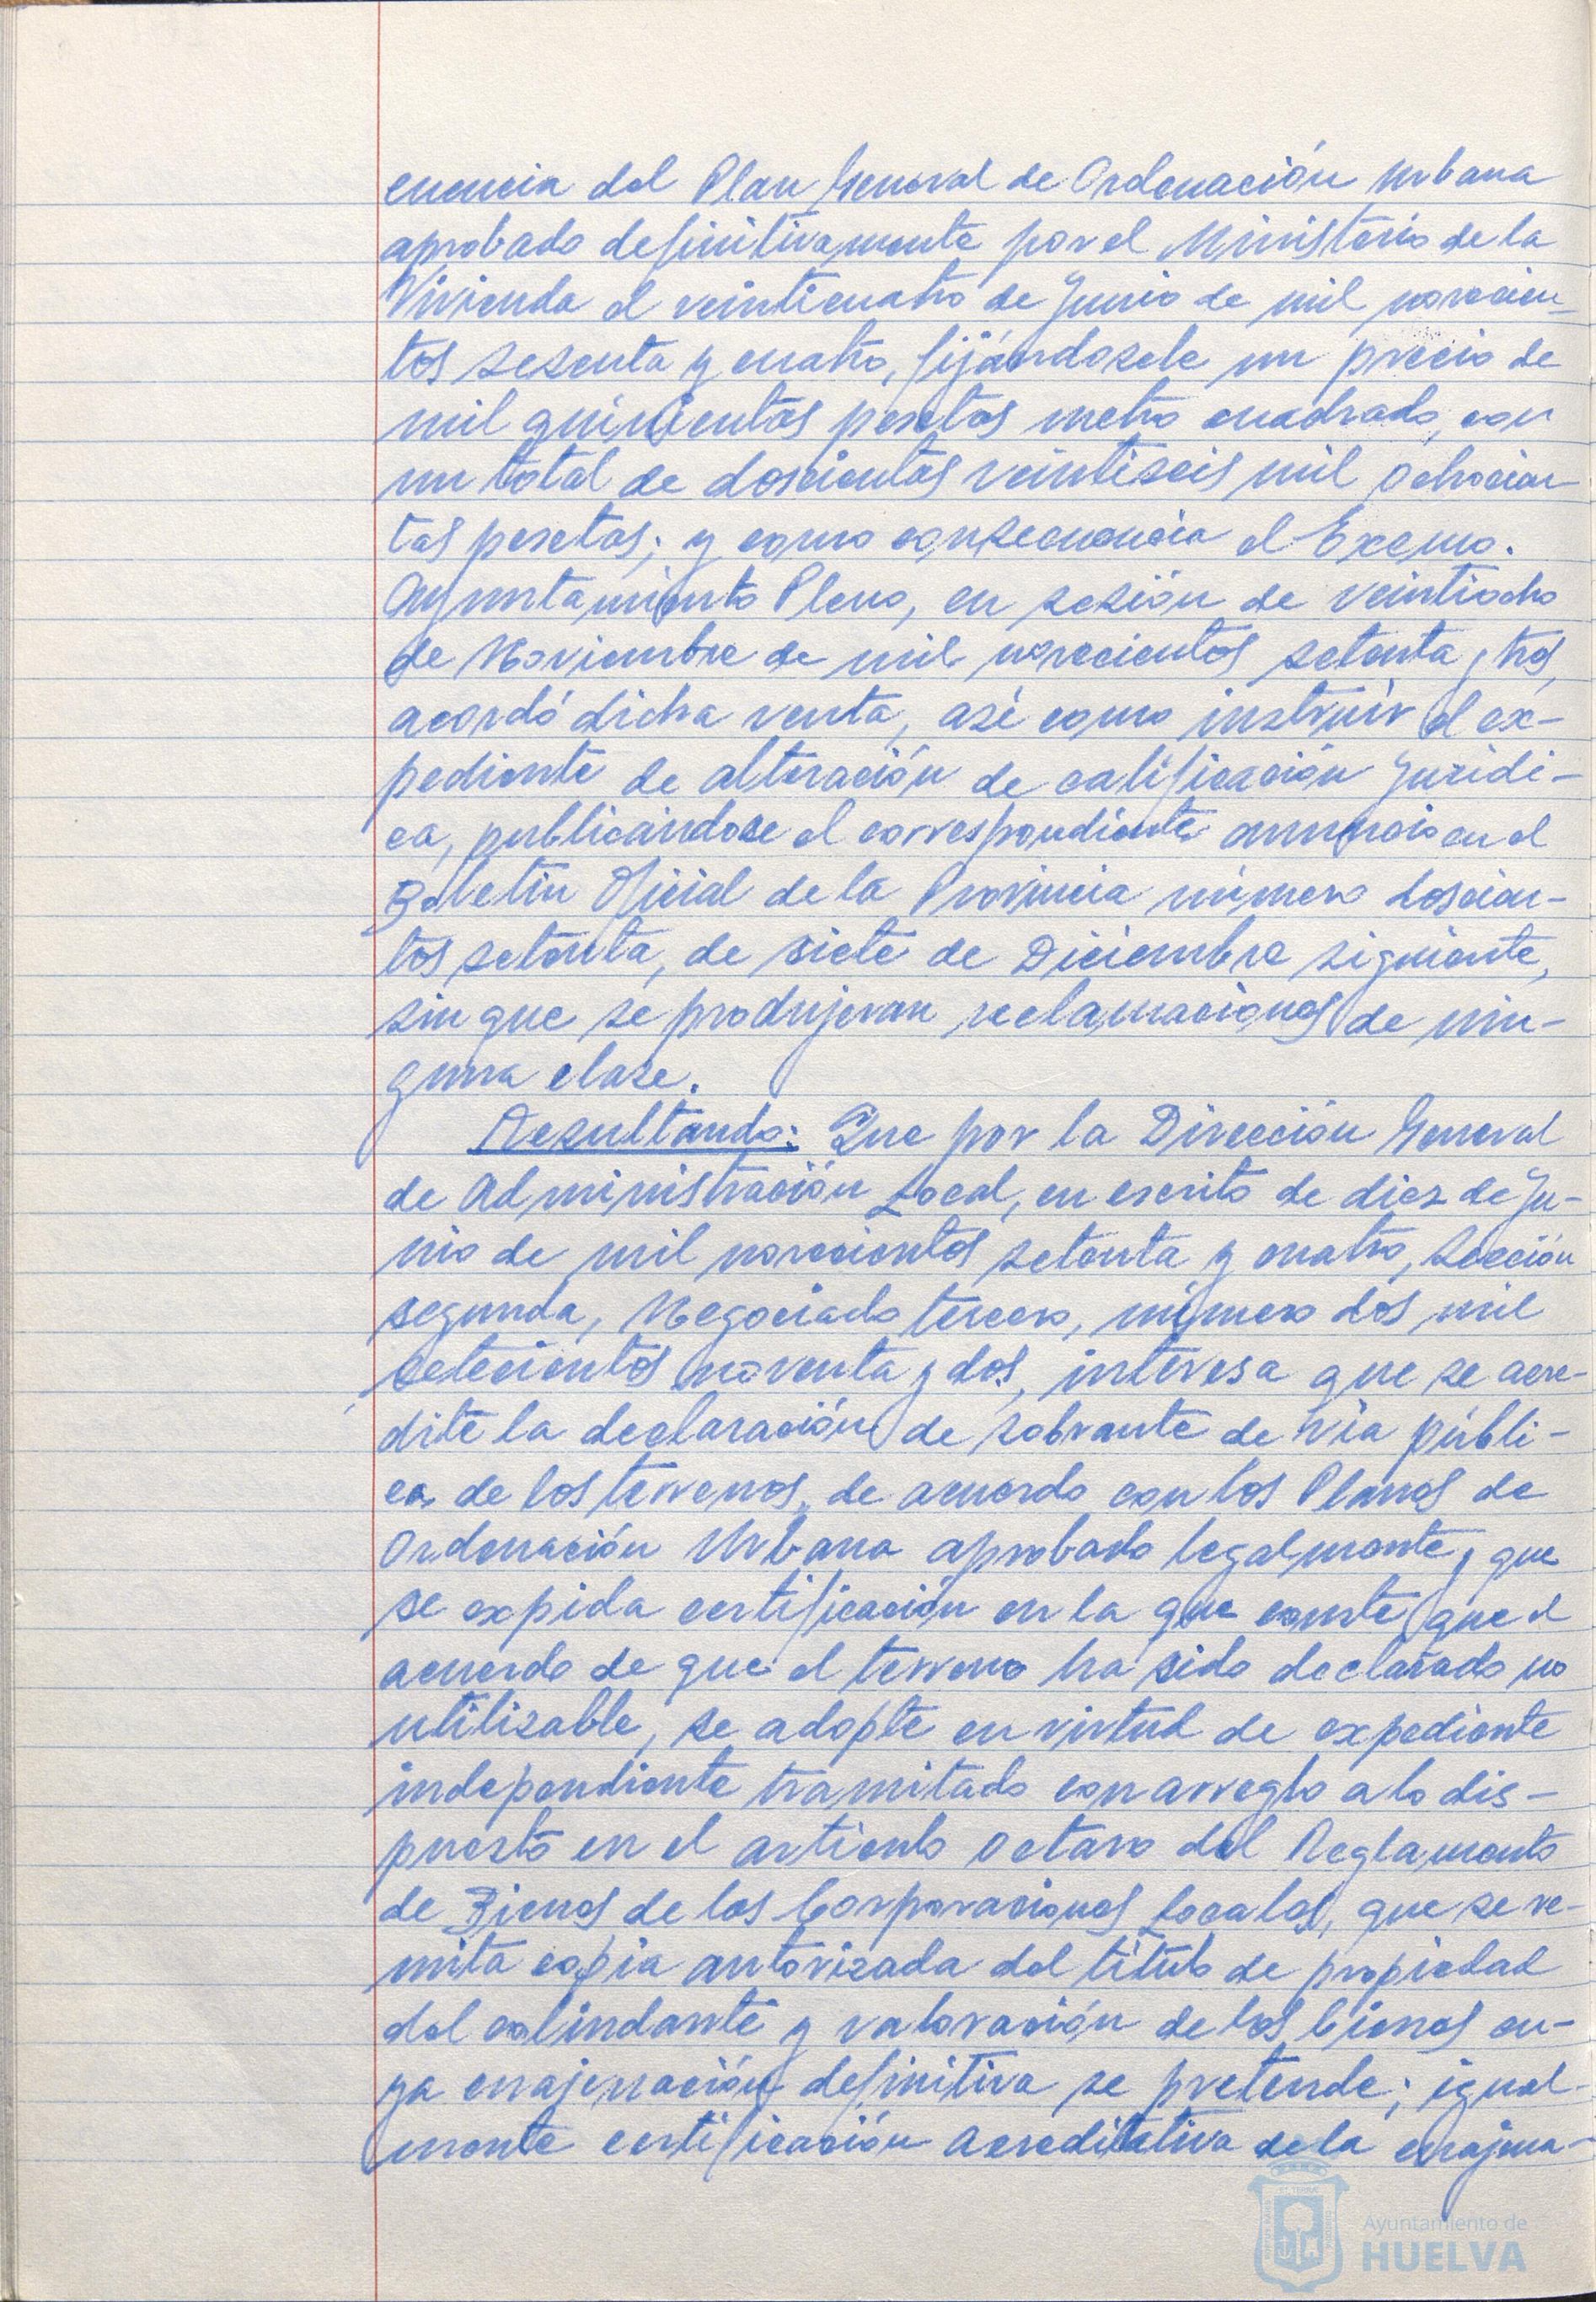 cuencia del Plan General de Ordenación Urbana
aprobado definitivamente por el Ministerio de la
Vivienda el veinticuatro de Junio de mil novecien-
tos sesenta y cuatro, fijándosele un precio de
mil quinientas pesetas metro cuadrado, con
un total de doscientas veintiseis mil ochocien-
tas pesetas; y como consecuencia el Excmo.
Ayuntamiento Pleno, en sesión de veintiocho
de Noviembre de mil novecientos setenta y tres,
acordó dicha venta, asi como instruir el ex-
pediente de alteración de calificación Juridi-
ca, publicándose el correspondiente anuncio en el
Boletin Oficial de la Provincia número doscien-
tos setenta, de siete de Diciembre siguiente,
sin que se produjeran reclamaciones de nin-
guna clase.
Resultando: Que por la Dirección General
de Administración Local, en escrito de diez de Ju-
nio de mil novecientos setenta y cuatro, Sección
segunda, Negociado tercero, número dos mil
setecientos noventa y dos, interesa que se acre-
dite la declaración de sobrante de via públi-
ca de los terrenos, de acuerdo con los Planos de
Ordenación Urbana aprobado legalmente, que
se expida certificación en la que conste que el
acuerdo de que el terreno ha sido declarado no
utilizable, se adopte en virtud de expediente
independiente tramitado con arreglo a lo dis-
puesto en el articulo octavo del Reglamento
de Bienes de las Corporaciones Locales, que se re-
mita copia autorizada del titulo de propiedad
del colindante y valoración de los bienes cu-
ya enajenación definitiva se pretende; igual-
mente certificación acreditativa de la enajena-
Ayuntamiento de
HUELVA